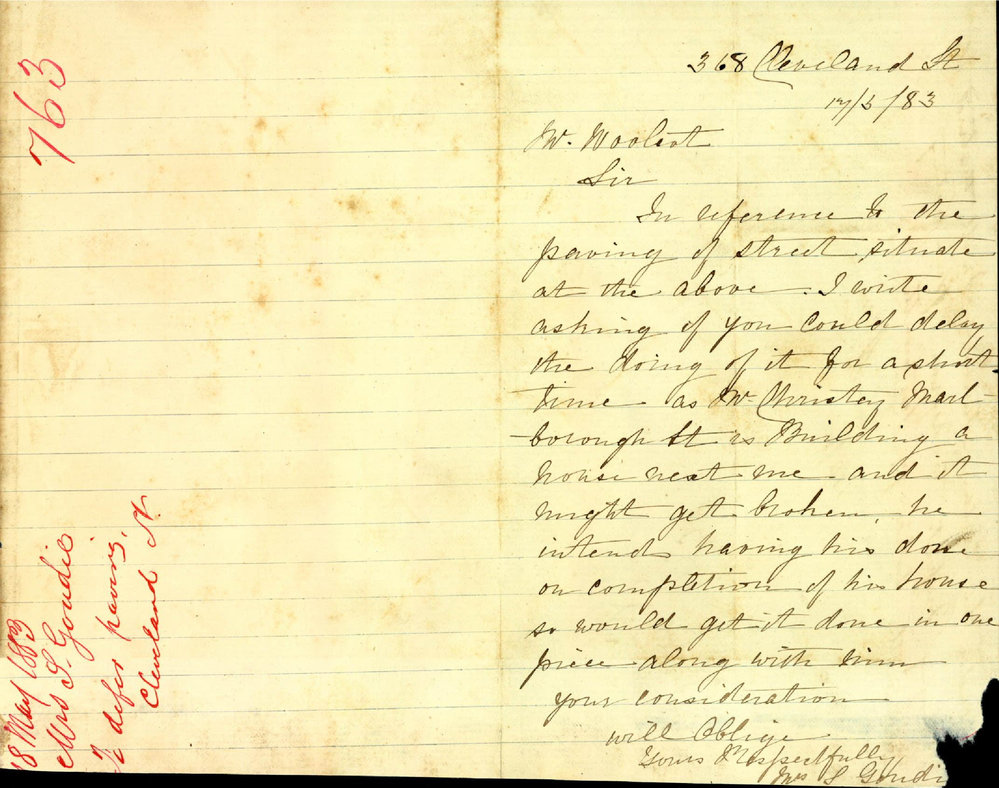 763
18 May 1883
Mrs S. Goudie
To defer paving,
Cleveland St
368 Cleveland St
17/5/83
Mr. Woolcot
Sir
In reference to the
paving of street situate
at the above. I write
asking if you could delay
the doing of it for a short
time as Mr Christey Marl-
-borough St is Building a
house next me and it
might get broken, he
intends having his done
on completion of his house
so would get it done in one
piece along with him
your consideration
will Oblige
Yours Respectfully
Mrs S Goudi